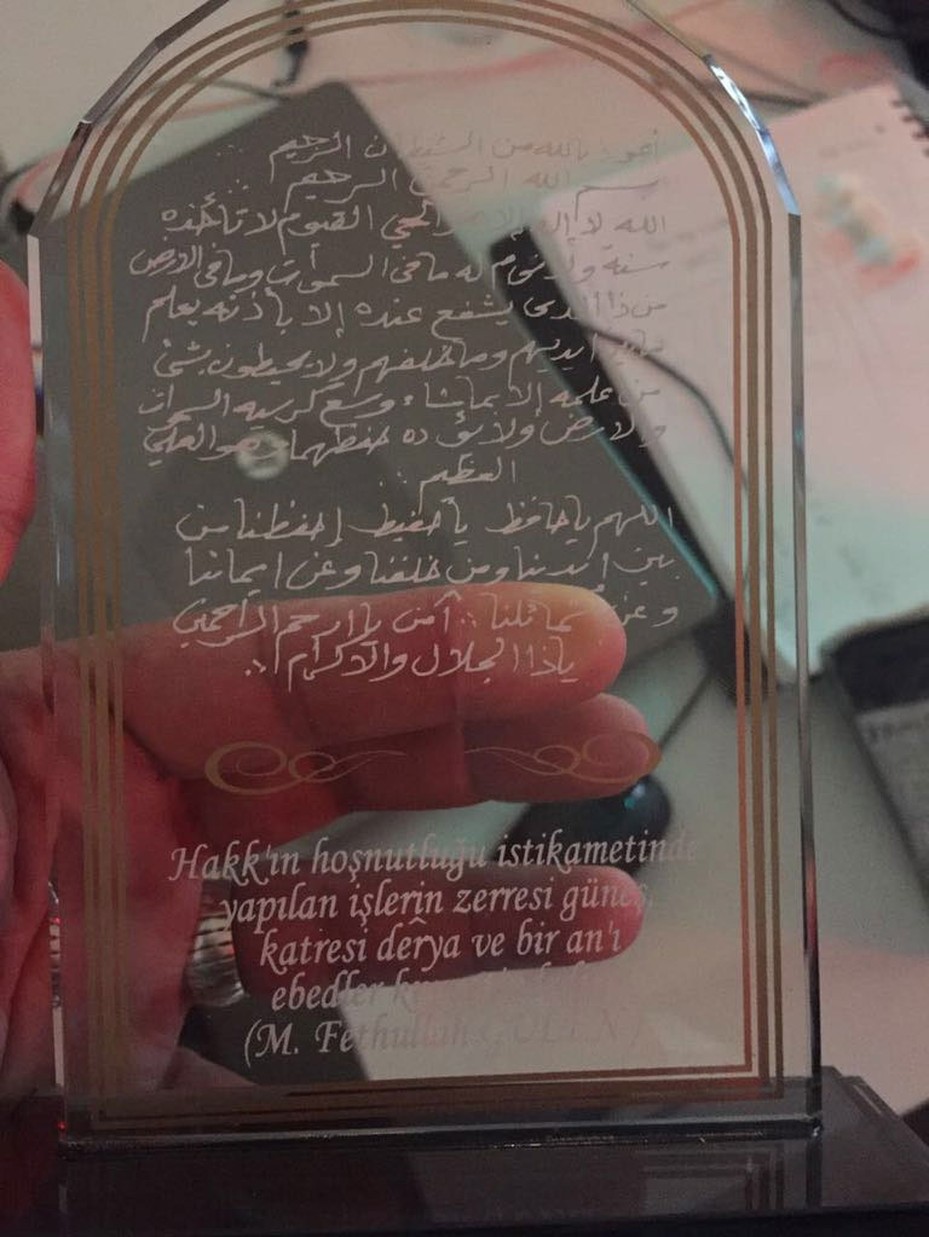 أعوذ بالله من الشيطان الرجيم
بسم الله الرحمن الرحيم
الله لا إله إلا هو الحي القيوم لا تأخذه
سنة ولا نوم له ما في السموات وما في الارض
من ذا الذى يشفع عنده إلا بإذنه يعلم
ما بين ايديهم وما خلفهم ولا يحيطون بشئ
من علمه إلا بما شاء وسع كرسيه السموات
والارض ولا يؤده حفظهما وهو العلي
العظيم
اللهم يا حافظ يا حفيظ إحفظنا من
بين ايدينا ومن خلفنا وعن ايماننا
وعن شمائلنا آمن يا ارحم الراحمين
ياذا الجلال والاكرام
Hakk'ın hoşnutluğu istikametinde
yapılan işlerin zerresi güneş,
katresi derya ve bir an'ı
ebedler
(M. Fethullah GÜLEN)